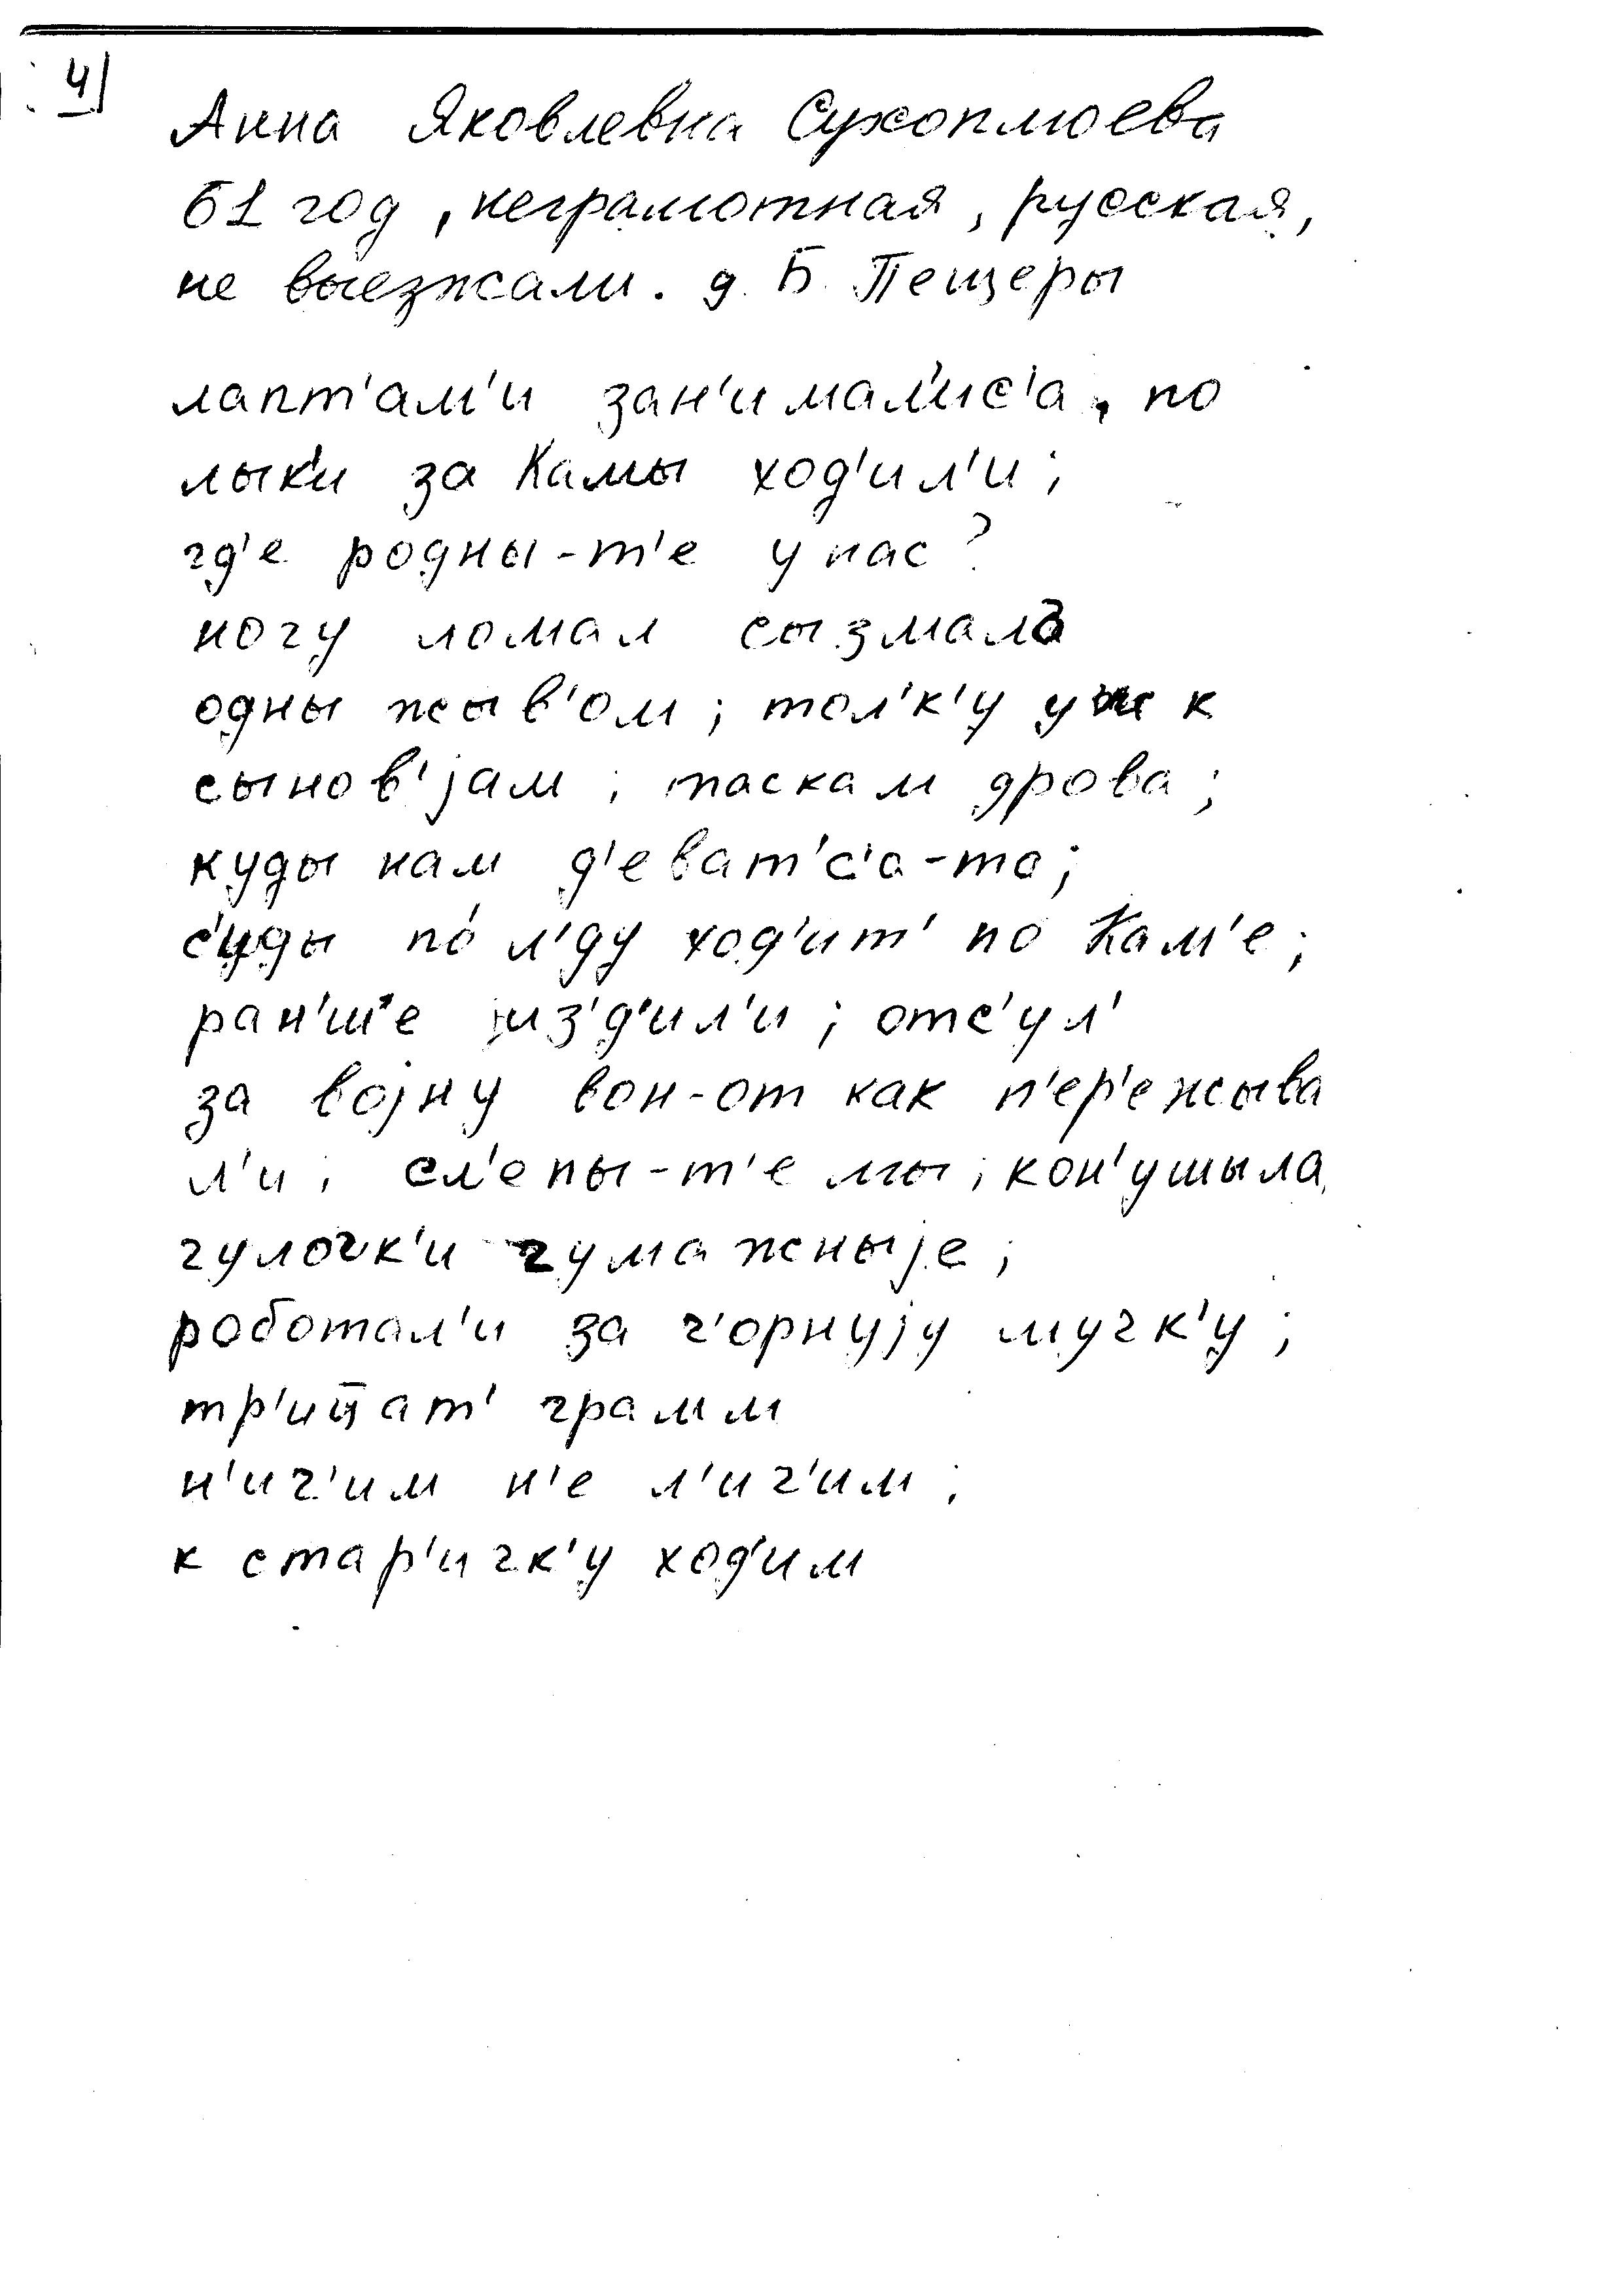 4)
Анна Яковлевна Сухоплюева
61 год, неграмотная, русская,
не выезжали. д. Б. Пещеры
лапт'ам'и зан'имал'ис'а, по
лык'и за Камы ход'ил'и;
гд'е родны-т'е у нас?
ногу ломал сызмала
одны жыв'ом; тол'к'у уж к
сынов'јам; таскам дрова;
куды нам д'еват'с'а-то;
с'уды по́ л'ду ход'ит' по Кам'е;
ран'ш'е јиз'д'ил'и; отс'ул'
за војну вон-от как п'ер'ежыва
л'и; сл'епы-т'е мы; кон'ушыла
чулочк'и чумажныје;
роботал'и за ч'орнују мучк'у;
тр'иц̄ат' грамм
н'ич'им н'е л'ич'им;
к стар'ичк'у ход'им